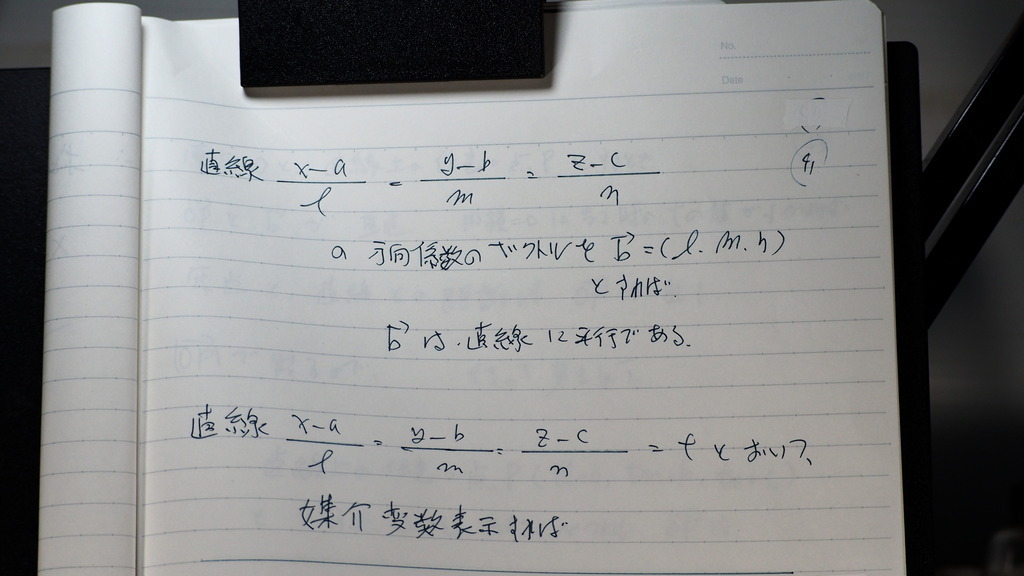 No.
Date
直線 (x-a)/l = (y-b)/m = (z-c)/n
の 方向係数のベクトルを b→=(l.m.n)
とすれば.
b→ は.直線に平行である.
直線 (x-a)/l = (y-b)/m = (z-c)/n = t とおいて、
媒介変数表示すれば